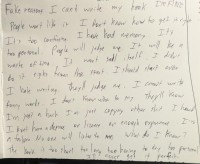 False reasons I can't write my book I'm
People won't like it. I don't know how to get it right
It's too confusing. I have bad memory. It's
too personal. People will judge me. It will be a
waste of time. It won't sell. I didn't
do it right from the start I should start over
I hate writing. They'll judge me. I cannot write
fancy words. I don't know who to say They'll know
I'm just a hack. I'm just copying other. I should
I don't have a degree or license or enough experience. I'm
a failure. No one will listen to me. Who do I know?
The book is too short too long too boring too for personal
I'll never get it perfect.